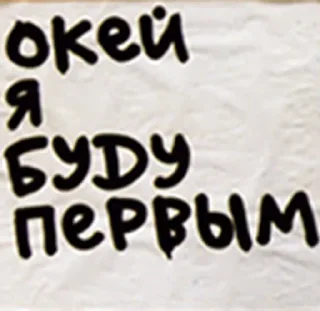 окей
я
буду
первым